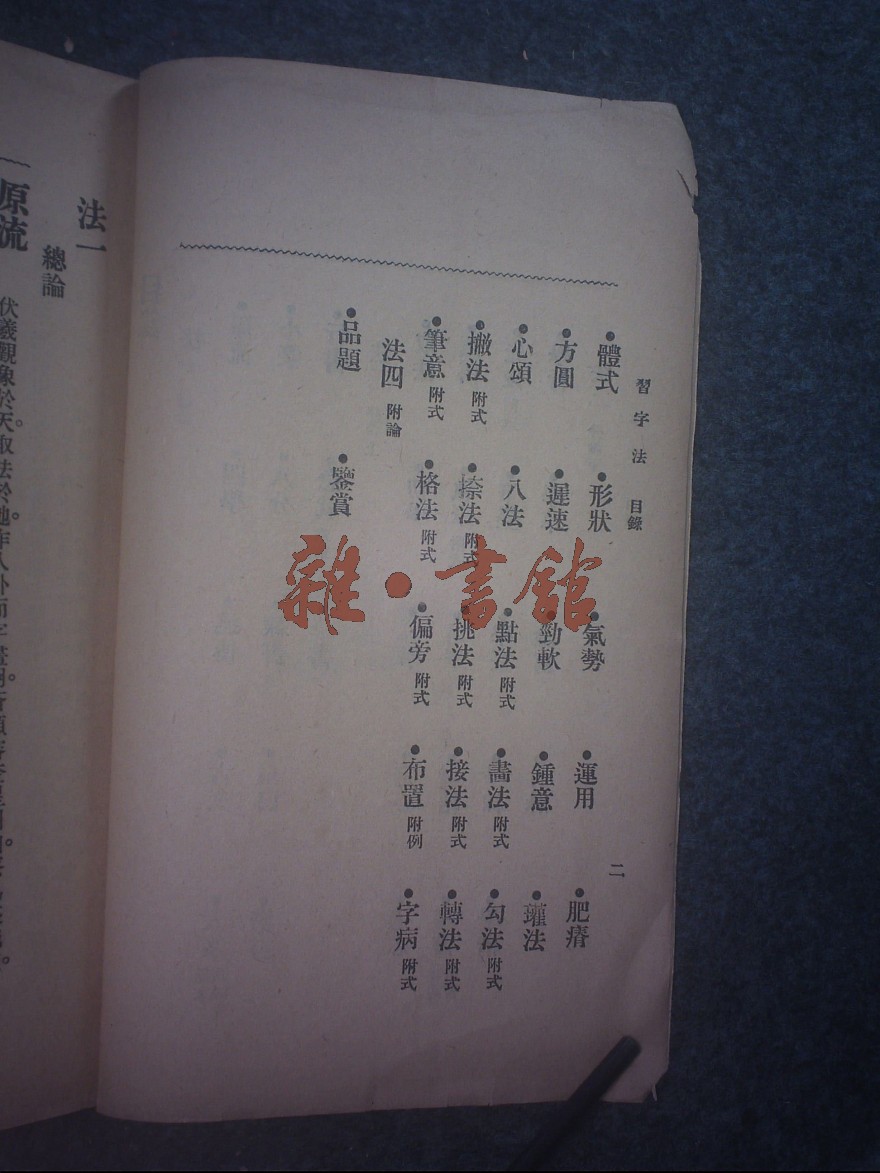 習字法 目錄 二
●體式 ●形狀 ●氣勢 ●運用 ●肥瘠
●方圓 ●遲速 ●勁軟 ●鍾意 ●瓘法
●心頌 ●八法 ●點法附式 ●畵法附式 ●勾法附式
●撇法附式 ●捺法附式 ●挑法附式 ●接法附式 ●轉法附式
●筆意附式 ●格法附式 ●偏旁附式 ●布置附例 ●字病附式
法四 附論
●品題 ●鑒賞
法一
總論
原流
伏羲觀象於天。取法於地。作八卦而字畫
雜·書館